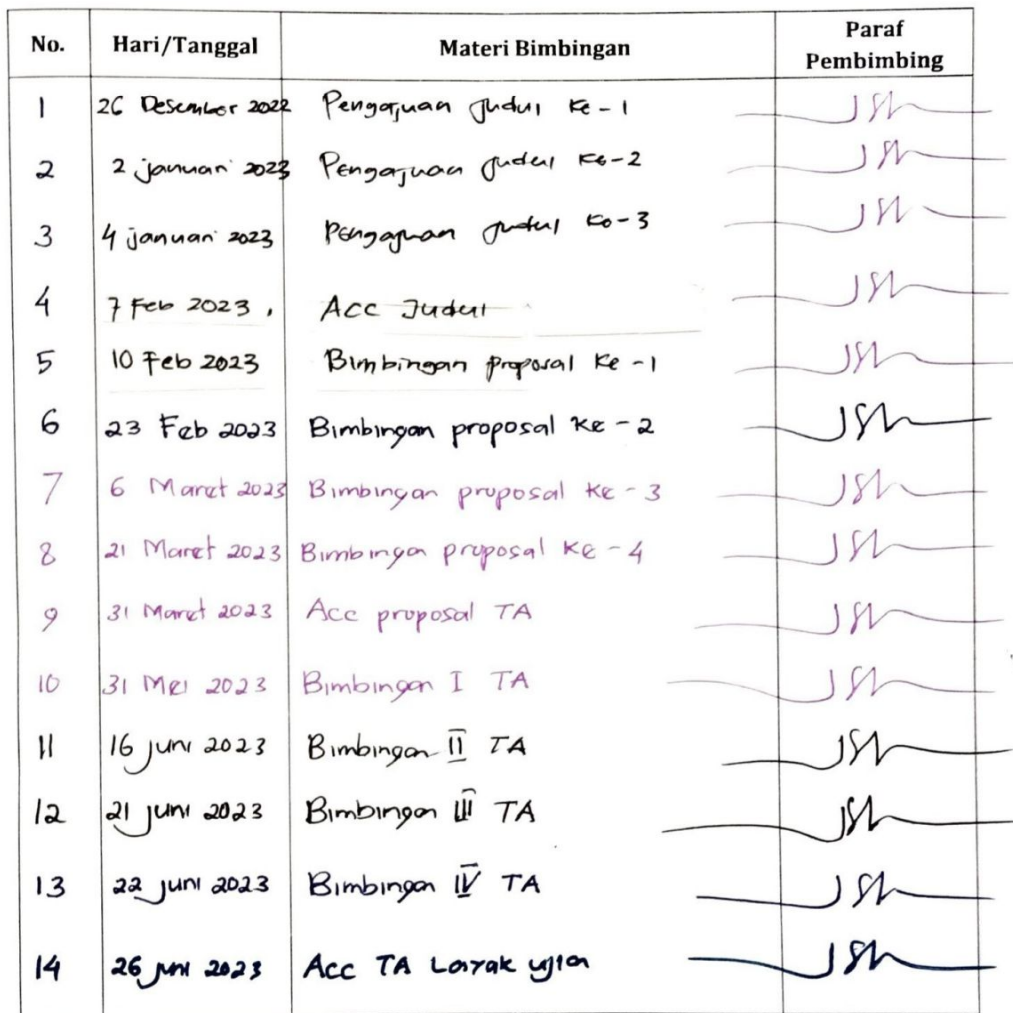 No. Hari/Tanggal Materi Bimbingan Paraf Pembimbing
1 26 Desember 2022 Pengajuan Judul Ke-1
2 2 januari 2023 Pengajuan Judul Ke-2
3 4 januari 2023 Pengajuan Judul Ke-3
4 7 Feb 2023, Acc Judul
5 10 Feb 2023 Bimbingan proposal Ke-1
6 23 Feb 2023 Bimbingan proposal Ke-2
7 6 Maret 2023 Bimbingan proposal Ke-3
8 21 Maret 2023 Bimbingan proposal Ke-4
9 31 Maret 2023 Acc proposal TA
10 31 Mei 2023 Bimbingan I TA
11 16 juni 2023 Bimbingan II TA
12 21 juni 2023 Bimbingan III TA
13 22 juni 2023 Bimbingan IV TA
14 26 juni 2023 Acc TA Layak ujian